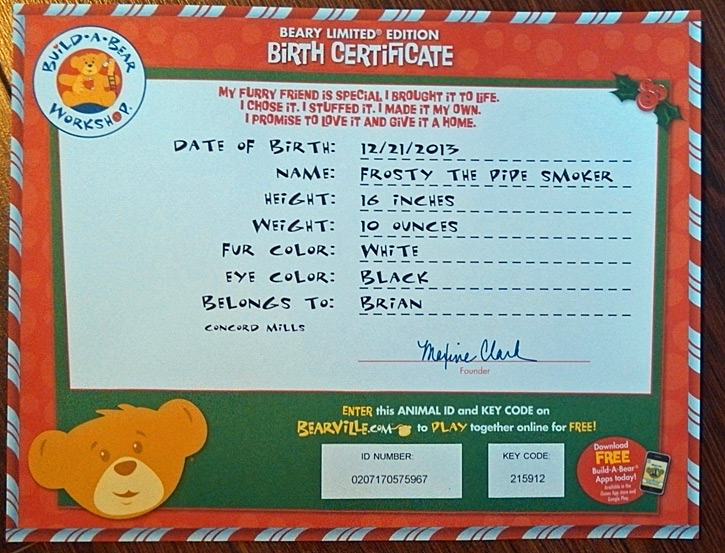 BUILD-A-BEAR
WORKSHOP.
BEARY LIMITED® EDITION
BIRTH CERTIFICATE
MY FURRY FRIEND IS SPECIAL, I BROUGHT IT TO LIFE.
I CHOSE IT. I STUFFED IT. I MADE IT MY OWN.
I PROMISE TO LOVE IT AND GIVE IT A HOME.
DATE OF BIRTH: 12/21/2013
NAME: FROSTY THE PIPE SMOKER
HEIGHT: 16 INCHES
WEIGHT: 10 OUNCES
FUR COLOR: WHITE
EYE COLOR: BLACK
BELONGS TO: BRIAN
CONCORD MILLS
Maxine Clark
Founder
ENTER this ANIMAL ID and KEY CODE on
BEARVILLE.COM to PLAY together online for FREE!
ID NUMBER:
0207170575967
KEY CODE:
215912
Download
FREE
Build-A-Bear®
Apps today!
Available in the
iTunes App store and
Google Play.